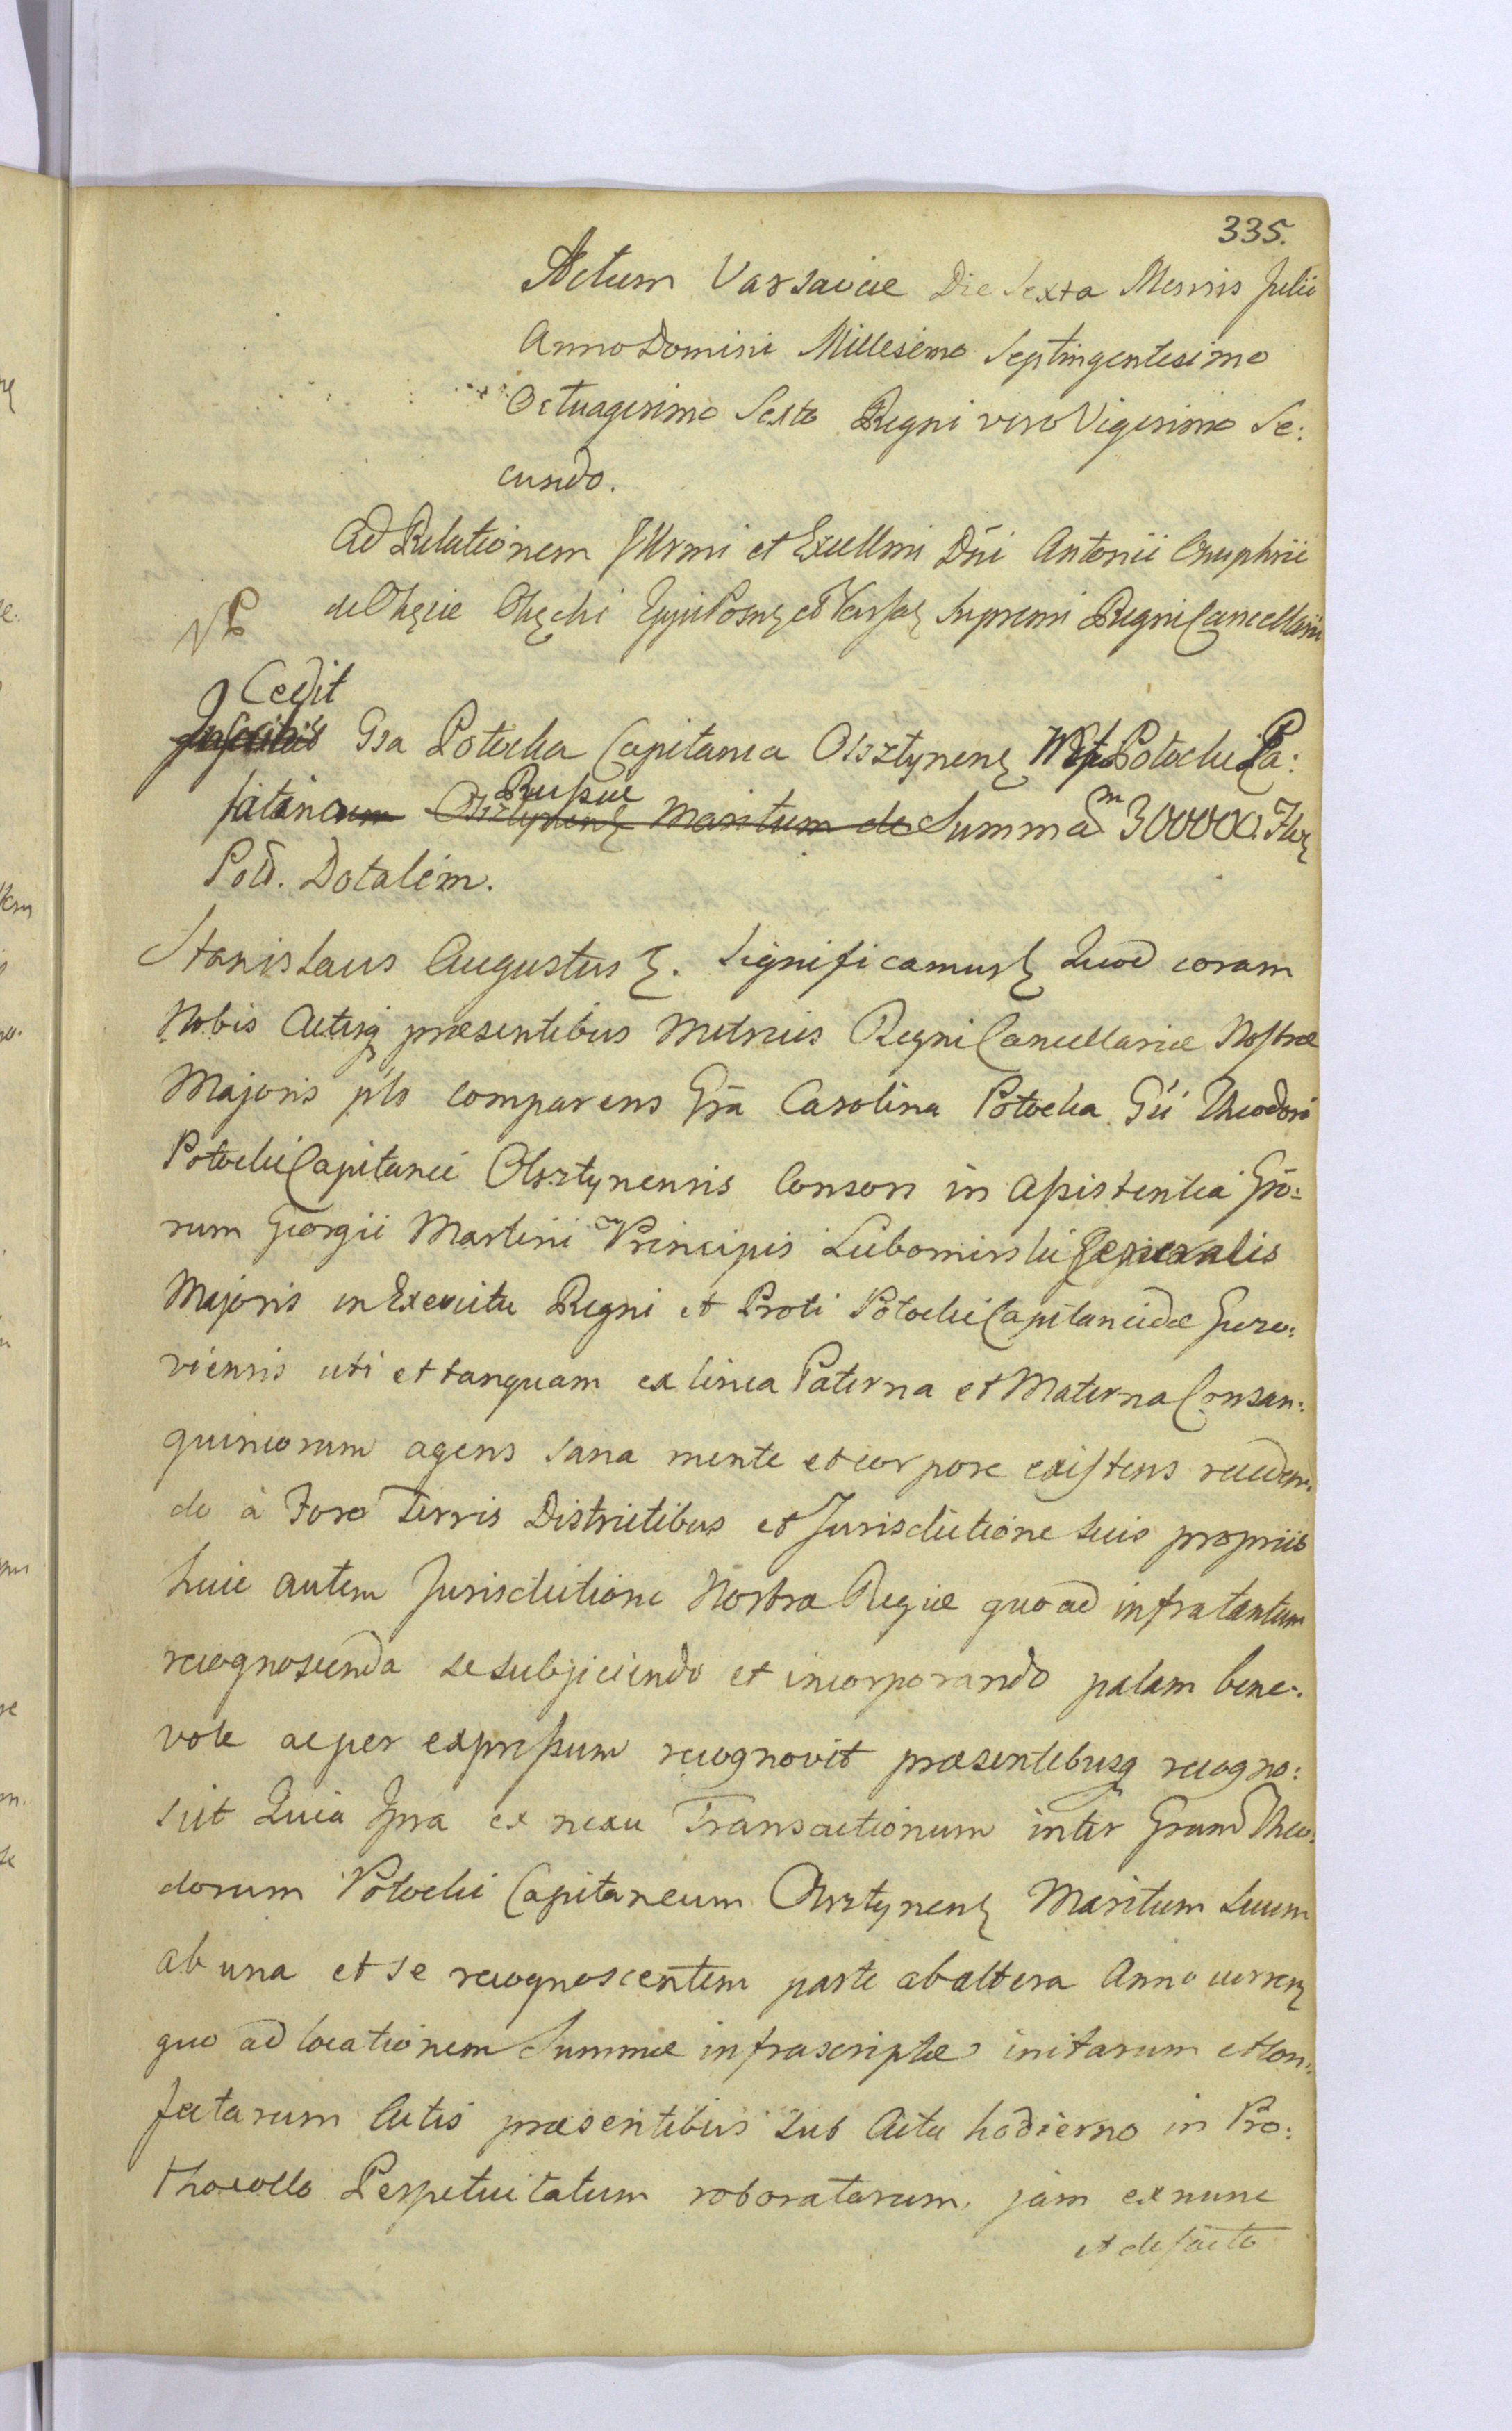 335.
Actum Varsaviae Die Sexta Mensis Julii
Anno Domini Millesimo Septingentesimo
Octuagesimo Sexto Regni vero Vigesimo Se:
cundo.
Ad Relationem Illrmi et Excellmi Dni Antonii Onuphrii
de Okęcie Okęcki Eppi Posnę et Varsaę Supremi Regni Cancellarii
Cedit
Gsa Potocka Capitanea Olsztynenę Potocki Pa:
latino Russiae
latinoum Olsztynenę Maritum de Summam 300000 Flor
Pol. Dotalem.
Stanislaus Augustus ę. Significamus ę Quod coram
Nobis Actisq praesentibus Metrices Regni Cancellariae Nostrae
Majoris plr comparens Gsa Carolina Potocka Gsi Theodori
Potocki Capitanei Olsztynensis Consors in Assistentia Gso:
rum Georgii Martini Principis Lubomirski Generalis
Majoris in Exercitu Regni et Proti Potocki Capitaneidae Guzo:
viensis uti et tanquam ex linea Paterna et Materna Consan:
guineorum agens sana mente et corpore existens receden:
do à Foro Terris Districtibus et Jurisdictione suis propriis
huic autem Jurisdictioni Nostrae Regiae quo ad infra tantum
recognoscenda se subjiciendo et incorporando palam bene:
vole ac per expressum recognovit praesentibusq recogno:
scit Quia Ipsa ex nexu Transactionum inter Gsum Theo:
dorum Potocki Capitaneum Olsztynenę Maritum Suum
ab una et se recognoscentem parte ab altera Anno currenę
quo ad locationem Summae infrascriptae initarum et Con:
fectarum Actis praesentibus sub Actu hodierno in Pro:
thocollo Perpetuitatum roboratarum, jam ex nunc
et de facto